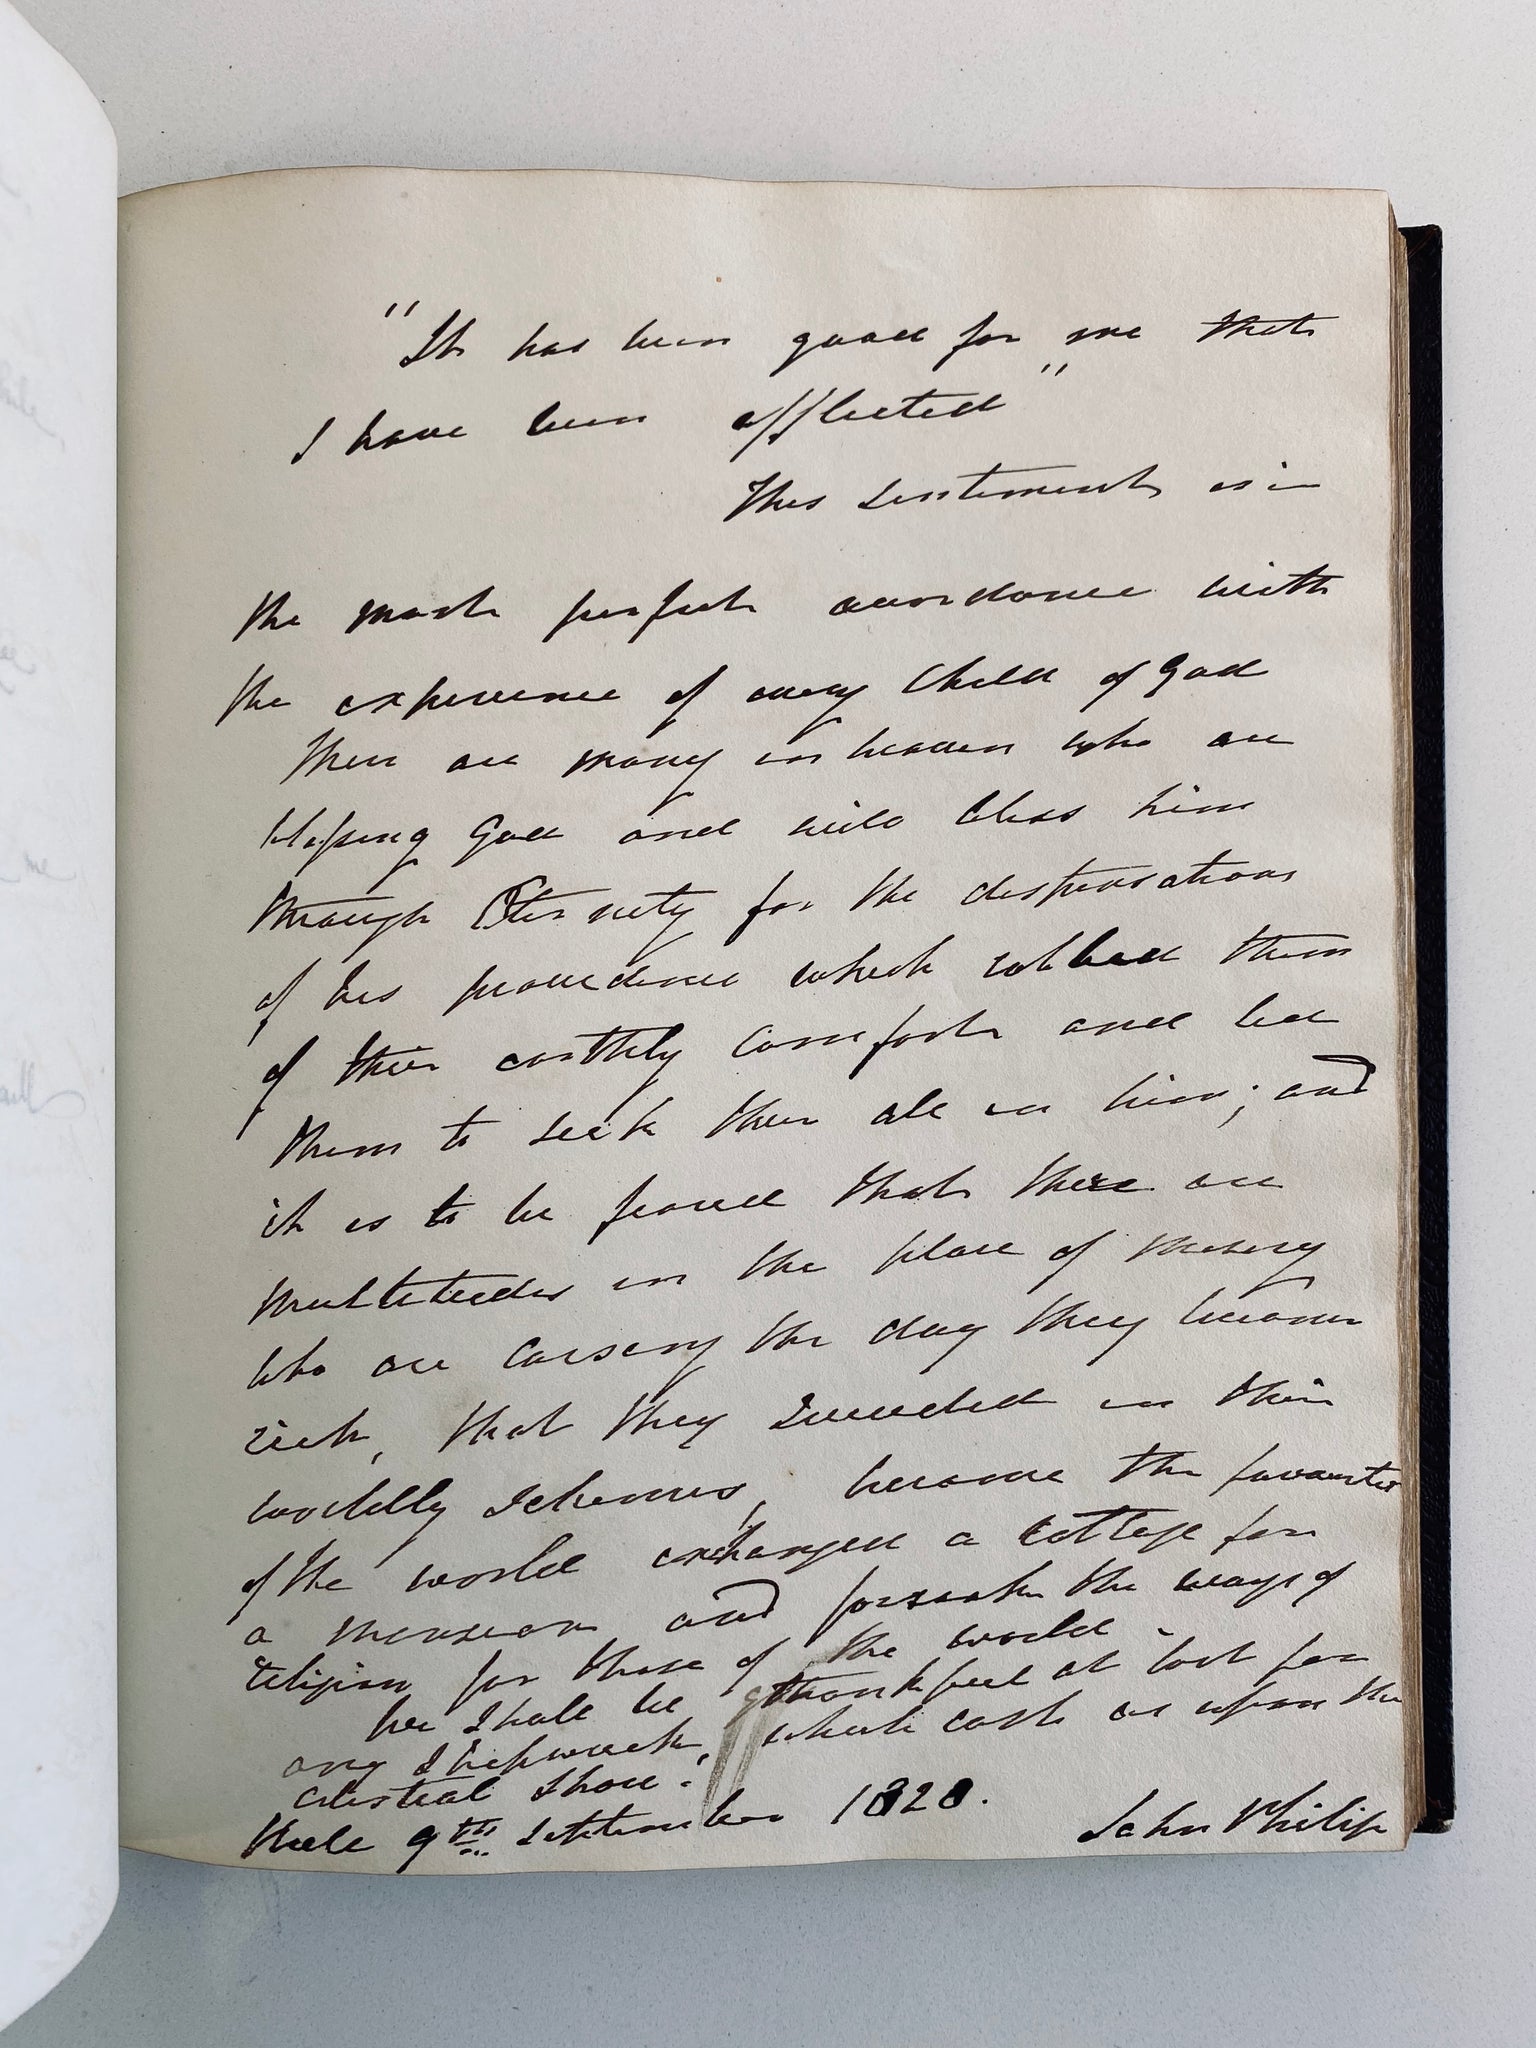 "It has been good for me that
I have been afflicted"
This sentiment is in
the most perfect accordance with
the experience of every Child of God
There are many in heaven who are
blessing God and will bless him
through Eternity for the dispensations
of his providence which robbed them
of their earthly comforts and led
them to seek their all in him; and
it is to be feared that there are
multitudes in the place of misery
who are cursing the day they became
rich, that they succeeded in their
worldly schemes, became the favourites
of the world exchanged a cottage for
a mansion and forsook the ways of
religion for those of the world.
We shall be thankful at last for
any shipwreck, which casts us upon the
celestial shore.
9th September 1828.
John Philip